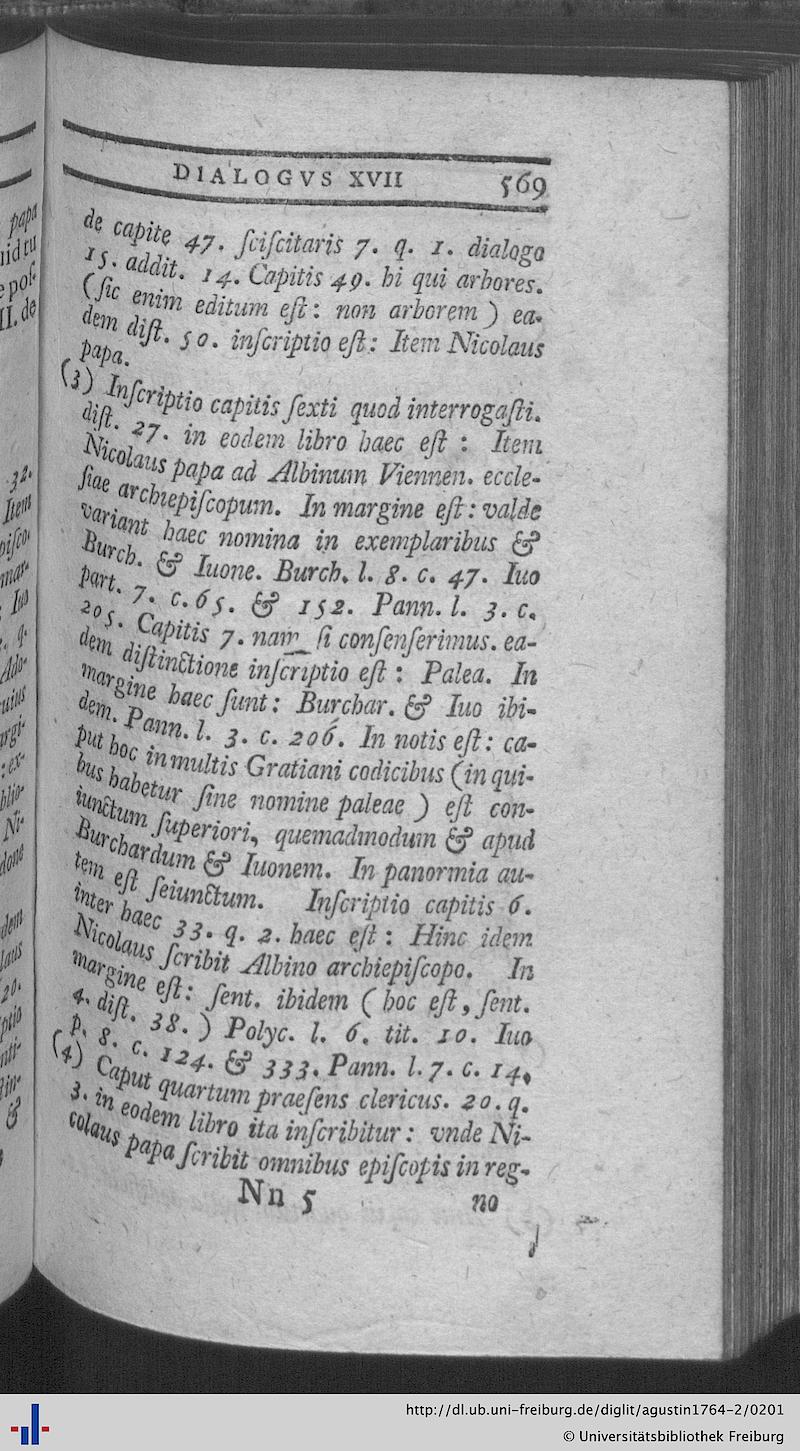 DIALOGVS XVII 569
de capite 47. ſciſcitaris 7. q. 1. dialogo
15. addit. 14. Capitis 49. hi qui arbores.
(ſic enim editum eſt: non arborem) ea-
dem diſt. 50. inſcriptio eſt: Item Nicolaus
papa.
(3) Inſcriptio capitis ſexti quod interrogaſti.
diſt. 27. in eodem libro haec eſt: Item
Nicolaus papa ad Albinum Viennen. eccle-
ſiae archiepiſcopum. In margine eſt: valde
variant haec nomina in exemplaribus &
Burch. & Iuone. Burch. l. 8. c. 47. Iuo
part. 7. c. 65. & 152. Pann. l. 3. c.
205. Capitis 7. nam ſi conſenſerimus. ea-
dem diſtinctione inſcriptio eſt: Palea. In
margine haec ſunt: Burchar. & Iuo ibi-
dem. Pann. l. 3. c. 206. In notis eſt: ca-
put hoc in multis Gratiani codicibus (in qui-
bus habetur ſine nomine paleae) eſt con-
iunctum ſuperiori, quemadmodum & apud
Burchardum & Iuonem. In panormia au-
tem eſt ſeiunctum. Inſcriptio capitis 6.
inter haec 33. q. 2. haec eſt: Hinc idem
Nicolaus ſcribit Albino archiepiſcopo. In
margine eſt: ſent. ibidem (hoc eſt, ſent.
4. diſt. 38.) Polyc. l. 6. tit. 10. Iuo
p. 8. c. 124. & 333. Pann. l. 7. c. 14.
(4) Caput quartum praeſens clericus. 20. q.
3. in eodem libro ita inſcribitur: vnde Ni-
colaus papa ſcribit omnibus epiſcopis in reg-
Nn 5 no
papa
uid tu
e poſ-
II. de
32.
Item
piſco-
mar-
Iuo
q.
Ado-
uius
argi-
: ex-
blio-
Ni-
done
dem
laus
20.
ptio
nti-
&
http://dl.ub.uni-freiburg.de/diglit/agustin1764-2/0201
© Universitätsbibliothek Freiburg